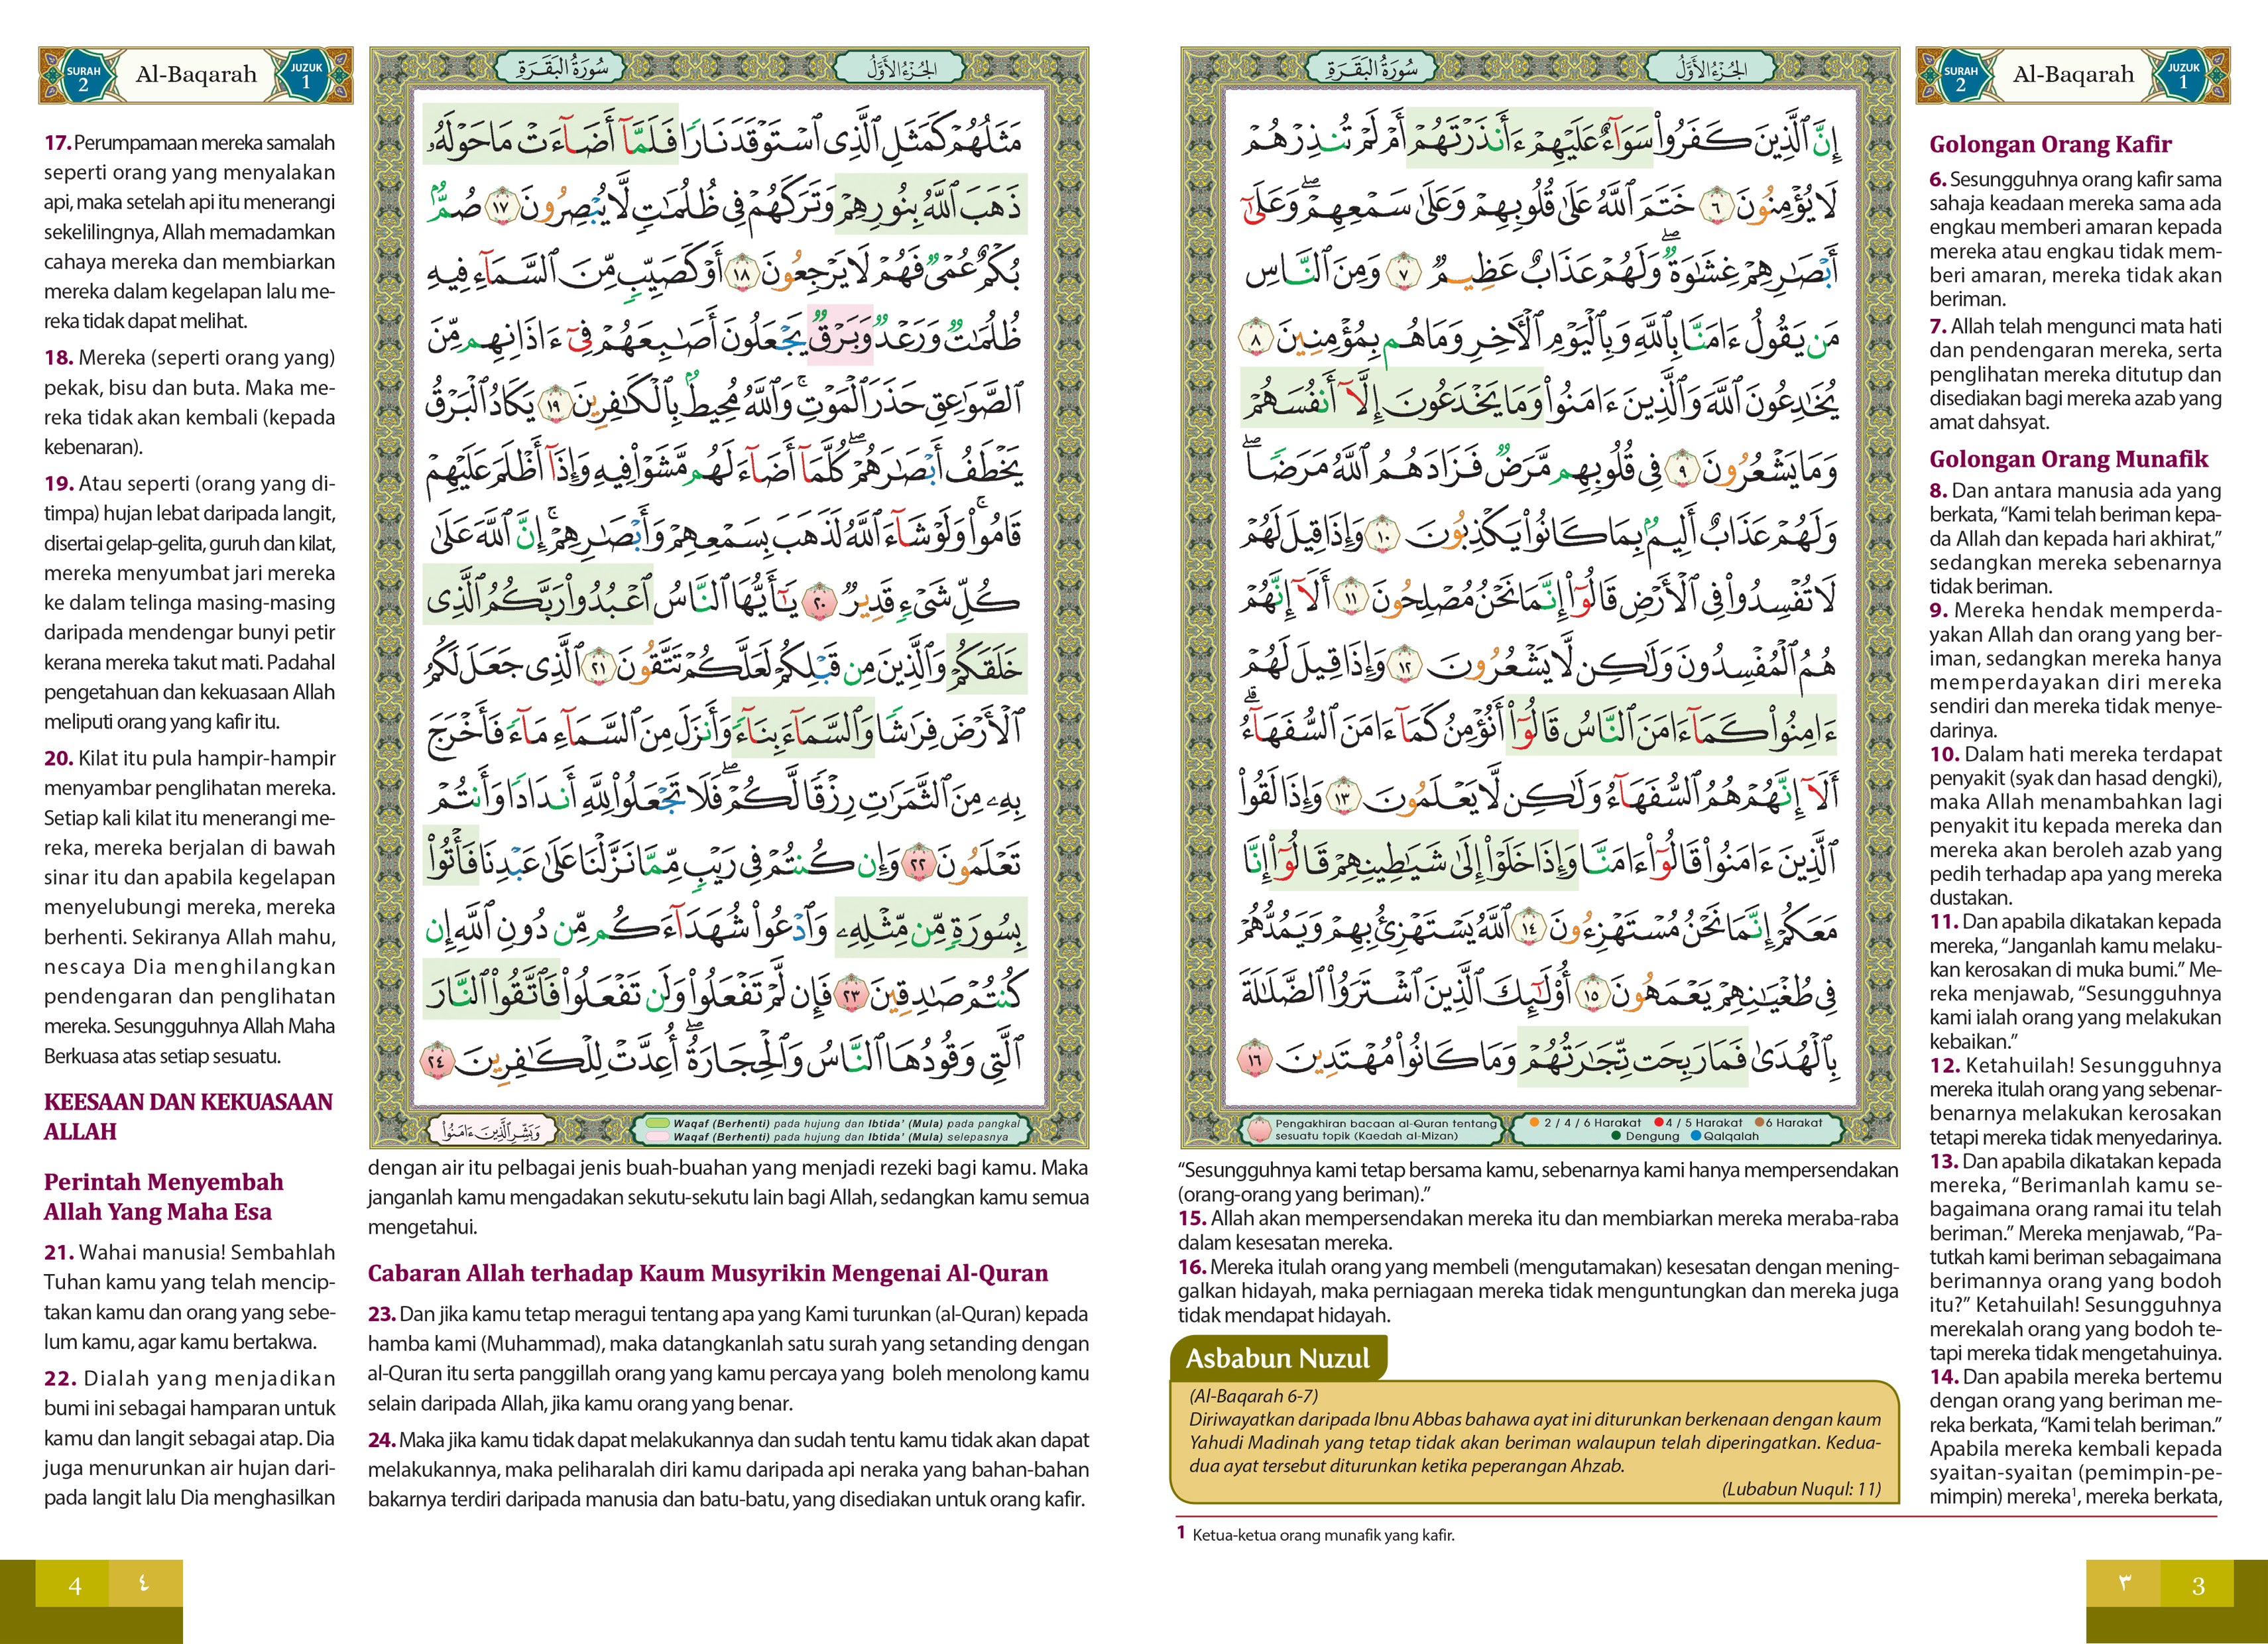 SURAH 2
Al-Baqarah
JUZUK 1
سُورَةُ الْبَقَرَةِ
الجُزْءُ الأَوَّلُ
إِنَّ ٱلَّذِينَ كَفَرُوا۟ سَوَآءٌ عَلَيْهِمْ ءَأَنذَرْتَهُمْ أَمْ لَمْ تُنذِرْهُمْ
لَا يُؤْمِنُونَ ٦ خَتَمَ ٱللَّهُ عَلَىٰ قُلُوبِهِمْ وَعَلَىٰ سَمْعِهِمْ ۖ وَعَلَىٰٓ
أَبْصَـٰرِهِمْ غِشَـٰوَةٌ ۖ وَلَهُمْ عَذَابٌ عَظِيمٌ ٧ وَمِنَ ٱلنَّاسِ
مَن يَقُولُ ءَامَنَّا بِٱللَّهِ وَبِٱلْيَوْمِ ٱلْـَٔاخِرِ وَمَا هُم بِمُؤْمِنِينَ ٨
يُخَـٰدِعُونَ ٱللَّهَ وَٱلَّذِينَ ءَامَنُوا۟ وَمَا يَخْدَعُونَ إِلَّآ أَنفُسَهُمْ
وَمَا يَشْعُرُونَ ٩ فِى قُلُوبِهِم مَّرَضٌ فَزَادَهُمُ ٱللَّهُ مَرَضًا ۖ
وَلَهُمْ عَذَابٌ أَلِيمٌۢ بِمَا كَانُوا۟ يَكْذِبُونَ ١٠ وَإِذَا قِيلَ لَهُمْ
لَا تُفْسِدُوا۟ فِى ٱلْأَرْضِ قَالُوٓا۟ إِنَّمَا نَحْنُ مُصْلِحُونَ ١١ أَلَآ إِنَّهُمْ
هُمُ ٱلْمُفْسِدُونَ وَلَـٰكِن لَّا يَشْعُرُونَ ١٢ وَإِذَا قِيلَ لَهُمْ
ءَامِنُوا۟ كَمَآ ءَامَنَ ٱلنَّاسُ قَالُوٓا۟ أَنُؤْمِنُ كَمَآ ءَامَنَ ٱلسُّفَهَآءُ ۗ
أَلَآ إِنَّهُمْ هُمُ ٱلسُّفَهَآءُ وَلَـٰكِن لَّا يَعْلَمُونَ ١٣ وَإِذَا لَقُوا۟
ٱلَّذِينَ ءَامَنُوا۟ قَالُوٓا۟ ءَامَنَّا وَإِذَا خَلَوْا۟ إِلَىٰ شَيَـٰطِينِهِمْ قَالُوٓا۟ إِنَّا
مَعَكُمْ إِنَّمَا نَحْنُ مُسْتَهْزِءُونَ ١٤ ٱللَّهُ يَسْتَهْزِئُ بِهِمْ وَيَمُدُّهُمْ
فِى طُغْيَـٰنِهِمْ يَعْمَهُونَ ١٥ أُو۟لَـٰٓئِكَ ٱلَّذِينَ ٱشْتَرَوُا۟ ٱلضَّلَـٰلَةَ
بِٱلْهُدَىٰ فَمَا رَبِحَت تِّجَـٰرَتُهُمْ وَمَا كَانُوا۟ مُهْتَدِينَ ١٦
Pengakhiran bacaan al-Quran tentang
sesuatu topik (Kaedah al-Mizan)
2 / 4 / 6 Harakat 4 / 5 Harakat 6 Harakat
Dengung Qalqalah
Golongan Orang Kafir
6. Sesungguhnya orang kafir sama
sahaja keadaan mereka sama ada
engkau memberi amaran kepada
mereka atau engkau tidak mem-
beri amaran, mereka tidak akan
beriman.
7. Allah telah mengunci mata hati
dan pendengaran mereka, serta
penglihatan mereka ditutup dan
disediakan bagi mereka azab yang
amat dahsyat.
Golongan Orang Munafik
8. Dan antara manusia ada yang
berkata, “Kami telah beriman kepa-
da Allah dan kepada hari akhirat,”
sedangkan mereka sebenarnya
tidak beriman.
9. Mereka hendak memperda-
yakan Allah dan orang yang ber-
iman, sedangkan mereka hanya
memperdayakan diri mereka
sendiri dan mereka tidak menye-
darinya.
10. Dalam hati mereka terdapat
penyakit (syak dan hasad dengki),
maka Allah menambahkan lagi
penyakit itu kepada mereka dan
mereka akan beroleh azab yang
pedih terhadap apa yang mereka
dustakan.
11. Dan apabila dikatakan kepada
mereka, “Janganlah kamu melaku-
kan kerosakan di muka bumi.” Me-
reka menjawab, “Sesungguhnya
kami ialah orang yang melakukan
kebaikan.”
12. Ketahuilah! Sesungguhnya
mereka itulah orang yang sebenar-
benarnya melakukan kerosakan
tetapi mereka tidak menyedarinya.
13. Dan apabila dikatakan kepada
mereka, “Berimanlah kamu se-
bagaimana orang ramai itu telah
beriman.” Mereka menjawab, “Pa-
tutkah kami beriman sebagaimana
berimannya orang yang bodoh
itu?” Ketahuilah! Sesungguhnya
merekalah orang yang bodoh te-
tapi mereka tidak mengetahuinya.
14. Dan apabila mereka bertemu
dengan orang yang beriman me-
reka berkata, “Kami telah beriman.”
Apabila mereka kembali kepada
syaitan-syaitan (pemimpin-pe-
mimpin) mereka¹, mereka berkata,
“Sesungguhnya kami tetap bersama kamu, sebenarnya kami hanya mempersendakan
(orang-orang yang beriman).”
15. Allah akan mempersendakan mereka itu dan membiarkan mereka meraba-raba
dalam kesesatan mereka.
16. Mereka itulah orang yang membeli (mengutamakan) kesesatan dengan mening-
galkan hidayah, maka perniagaan mereka tidak menguntungkan dan mereka juga
tidak mendapat hidayah.
Asbabun Nuzul
(Al-Baqarah 6-7)
Diriwayatkan daripada Ibnu Abbas bahawa ayat ini diturunkan berkenaan dengan kaum
Yahudi Madinah yang tetap tidak akan beriman walaupun telah diperingatkan. Kedua-
dua ayat tersebut diturunkan ketika peperangan Ahzab.
(Lubabun Nuqul: 11)
1 Ketua-ketua orang munafik yang kafir.
٣ 3
SURAH 2
Al-Baqarah
JUZUK 1
سُورَةُ الْبَقَرَةِ
الجُزْءُ الأَوَّلُ
مَثَلُهُمْ كَمَثَلِ ٱلَّذِى ٱسْتَوْقَدَ نَارًا فَلَمَّآ أَضَآءَتْ مَا حَوْلَهُۥ
ذَهَبَ ٱللَّهُ بِنُورِهِمْ وَتَرَكَهُمْ فِى ظُلُمَـٰتٍ لَّا يُبْصِرُونَ ١٧ صُمٌّۢ
بُكْمٌ عُمْىٌ فَهُمْ لَا يَرْجِعُونَ ١٨ أَوْ كَصَيِّبٍ مِّنَ ٱلسَّمَآءِ فِيهِ
ظُلُمَـٰتٌ وَرَعْدٌ وَبَرْقٌ يَجْعَلُونَ أَصَـٰبِعَهُمْ فِىٓ ءَاذَانِهِم مِّنَ
ٱلصَّوَٰعِقِ حَذَرَ ٱلْمَوْتِ ۚ وَٱللَّهُ مُحِيطٌۢ بِٱلْكَـٰفِرِينَ ١٩ يَكَادُ ٱلْبَرْقُ
يَخْطَفُ أَبْصَـٰرَهُمْ ۖ كُلَّمَآ أَضَآءَ لَهُم مَّشَوْا۟ فِيهِ وَإِذَآ أَظْلَمَ عَلَيْهِمْ
قَامُوا۟ ۚ وَلَوْ شَآءَ ٱللَّهُ لَذَهَبَ بِسَمْعِهِمْ وَأَبْصَـٰرِهِمْ ۚ إِنَّ ٱللَّهَ عَلَىٰ
كُلِّ شَىْءٍ قَدِيرٌ ٢٠ يَـٰٓأَيُّهَا ٱلنَّاسُ ٱعْبُدُوا۟ رَبَّكُمُ ٱلَّذِى
خَلَقَكُمْ وَٱلَّذِينَ مِن قَبْلِكُمْ لَعَلَّكُمْ تَتَّقُونَ ٢١ ٱلَّذِى جَعَلَ لَكُمُ
ٱلْأَرْضَ فِرَٰشًا وَٱلسَّمَآءَ بِنَآءً وَأَنزَلَ مِنَ ٱلسَّمَآءِ مَآءً فَأَخْرَجَ
بِهِۦ مِنَ ٱلثَّمَرَٰتِ رِزْقًا لَّكُمْ ۖ فَلَا تَجْعَلُوا۟ لِلَّهِ أَندَادًا وَأَنتُمْ
تَعْلَمُونَ ٢٢ وَإِن كُنتُمْ فِى رَيْبٍ مِّمَّا نَزَّلْنَا عَلَىٰ عَبْدِنَا فَأْتُوا۟
بِسُورَةٍ مِّن مِّثْلِهِۦ وَٱدْعُوا۟ شُهَدَآءَكُم مِّن دُونِ ٱللَّهِ إِن
كُنتُمْ صَـٰدِقِينَ ٢٣ فَإِن لَّمْ تَفْعَلُوا۟ وَلَن تَفْعَلُوا۟ فَٱتَّقُوا۟ ٱلنَّارَ
ٱلَّتِى وَقُودُهَا ٱلنَّاسُ وَٱلْحِجَارَةُ ۖ أُعِدَّتْ لِلْكَـٰفِرِينَ ٢٤
وَبَشِّرِ ٱلَّذِينَ ءَامَنُوا۟
Waqaf (Berhenti) pada hujung dan Ibtida’ (Mula) pada pangkal
Waqaf (Berhenti) pada hujung dan Ibtida’ (Mula) selepasnya
17. Perumpamaan mereka samalah
seperti orang yang menyalakan
api, maka setelah api itu menerangi
sekelilingnya, Allah memadamkan
cahaya mereka dan membiarkan
mereka dalam kegelapan lalu me-
reka tidak dapat melihat.
18. Mereka (seperti orang yang)
pekak, bisu dan buta. Maka me-
reka tidak akan kembali (kepada
kebenaran).
19. Atau seperti (orang yang di-
timpa) hujan lebat daripada langit,
disertai gelap-gelita, guruh dan kilat,
mereka menyumbat jari mereka
ke dalam telinga masing-masing
daripada mendengar bunyi petir
kerana mereka takut mati. Padahal
pengetahuan dan kekuasaan Allah
meliputi orang yang kafir itu.
20. Kilat itu pula hampir-hampir
menyambar penglihatan mereka.
Setiap kali kilat itu menerangi me-
reka, mereka berjalan di bawah
sinar itu dan apabila kegelapan
menyelubungi mereka, mereka
berhenti. Sekiranya Allah mahu,
nescaya Dia menghilangkan
pendengaran dan penglihatan
mereka. Sesungguhnya Allah Maha
Berkuasa atas setiap sesuatu.
KEESAAN DAN KEKUASAAN
ALLAH
Perintah Menyembah
Allah Yang Maha Esa
21. Wahai manusia! Sembahlah
Tuhan kamu yang telah mencip-
takan kamu dan orang yang sebe-
lum kamu, agar kamu bertakwa.
22. Dialah yang menjadikan
bumi ini sebagai hamparan untuk
kamu dan langit sebagai atap. Dia
juga menurunkan air hujan dari-
pada langit lalu Dia menghasilkan
dengan air itu pelbagai jenis buah-buahan yang menjadi rezeki bagi kamu. Maka
janganlah kamu mengadakan sekutu-sekutu lain bagi Allah, sedangkan kamu semua
mengetahui.
Cabaran Allah terhadap Kaum Musyrikin Mengenai Al-Quran
23. Dan jika kamu tetap meragui tentang apa yang Kami turunkan (al-Quran) kepada
hamba kami (Muhammad), maka datangkanlah satu surah yang setanding dengan
al-Quran itu serta panggillah orang yang kamu percaya yang boleh menolong kamu
selain daripada Allah, jika kamu orang yang benar.
24. Maka jika kamu tidak dapat melakukannya dan sudah tentu kamu tidak akan dapat
melakukannya, maka peliharalah diri kamu daripada api neraka yang bahan-bahan
bakarnya terdiri daripada manusia dan batu-batu, yang disediakan untuk orang kafir.
4 ٤